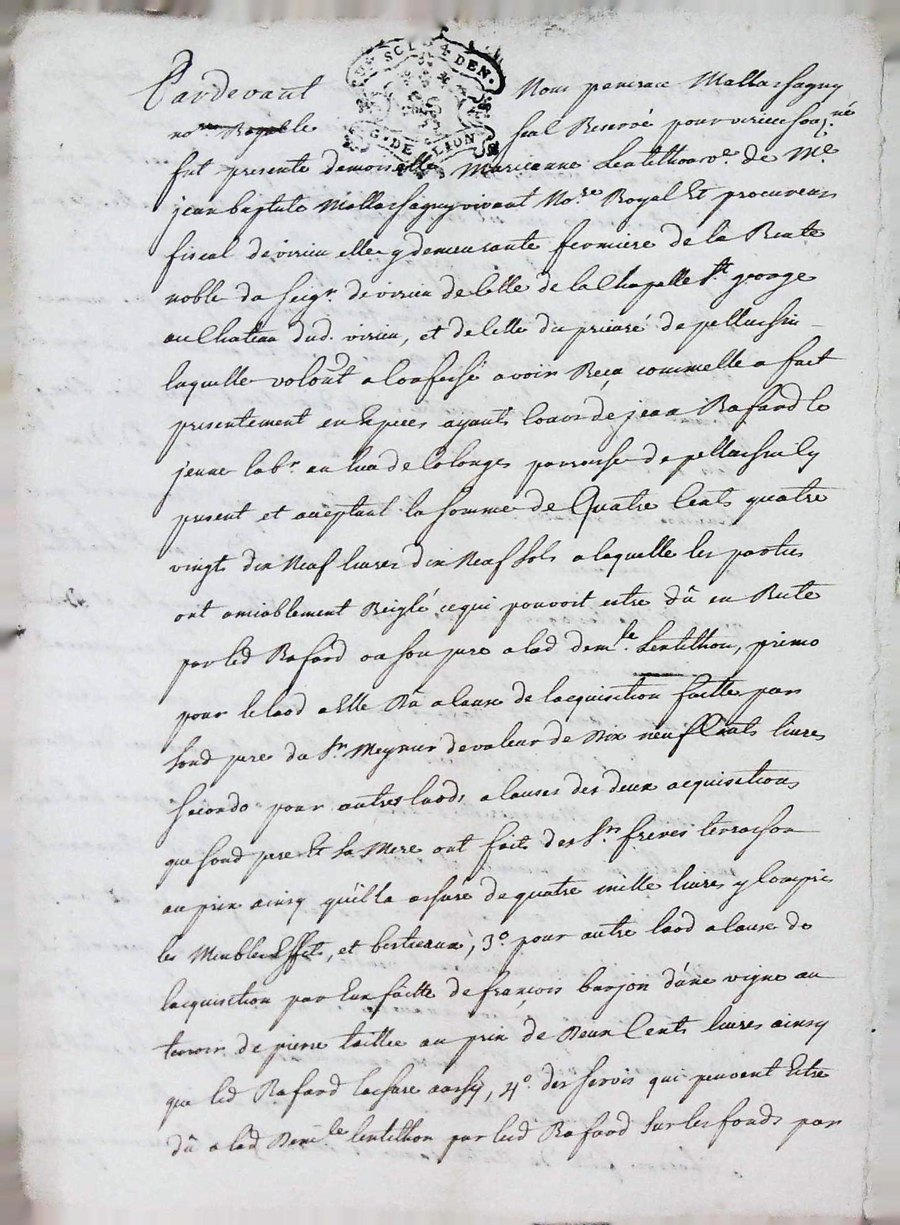 UN SOL 4 DEN.
G. DE LION
Pardevant Nous pierre Mallassagny
no.re Royal le seal Reservé pour virieu sous.né
fut presente demoiselle Marianne Lentillon ve. de Me.
jean baptiste Mallassagny vivant No.re Royal Et procureur
fiscal de virieu elle y demeurante fermiere de la Rente
noble du Seigr. de virieu de Celle de la Chapelle St. george
au Chateau dud. virieu, et de Celle du prieuré de pellussin
laquelle volont. a Confessé avoir Reçu comme elle a fait
presentement en Especes ayants Cours de jean Bafard le
jeune labr. au lieu de Colonges parroisse de pellussin Cy
present et aceptant la somme de Quatre Cents quatre
vingt dix Neuf livres dix Neuf sols a laquelle les parties
ont amiablement Reiglé ce qui pouvoit estre dû en Reste
par led Bafard ou son pere a lad dem.lle Lentillon, primo
pour le laod a Elle Dû a Cause de lacquisition faitte par
sond pere du Sr. Meynier de valeur de Dix neuf Cents livres
secondo pour autres laods a Causes des deux acquisitions
que sond pere Et sa Mere ont fait des Srs. freres terrasson
au prix ainsy qu'il la assuré de quatre mille livres y Compris
les Meubles Effets, et bestieaux, 3o. pour autre laod a Cause de
lacquisition par Eux faitte de françois barjon d'une vigne au
terroir de pierre taillée au prix de Deux Cents livres ainsy
que led Bafard lassure aussy, 4o. des servis qui peuvent Estre
dû a lad Dem.lle lentillon par led Bafard sur les fonds par